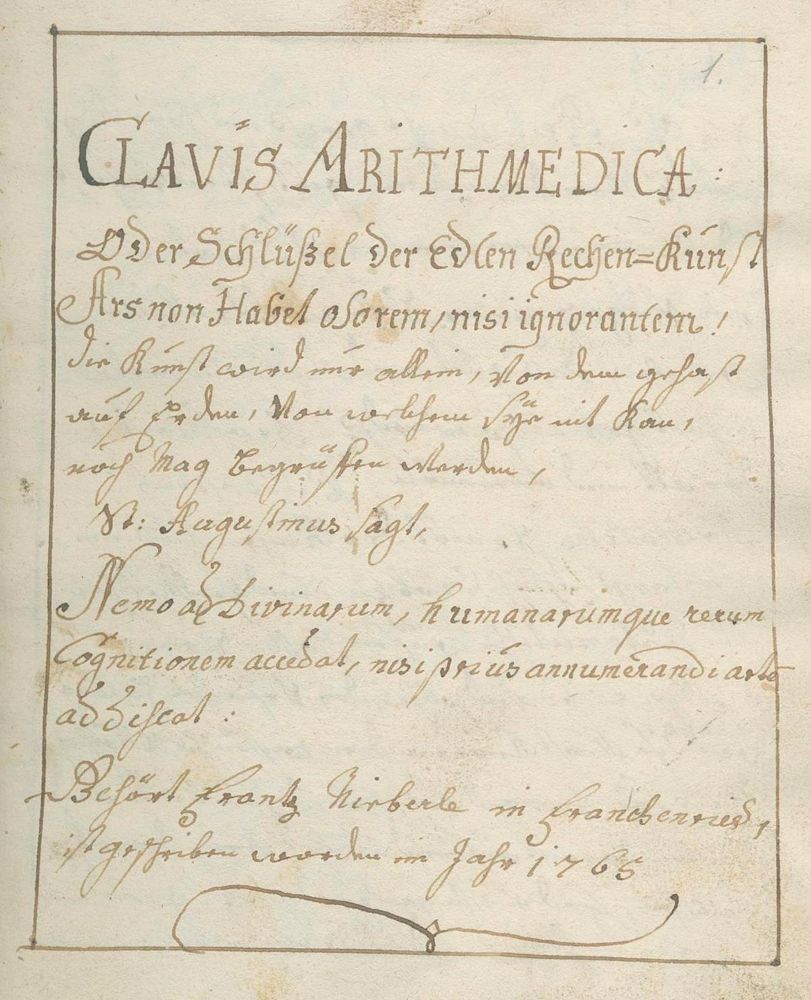 1.
CLAVIS ARITHMEDICA:
Oder Schlüßel der Edlen Rechen=Kunst
Ars non Habet osorem, nisi ignorantem!
die Kunst wird nur allein, von dem gehast
auf Erden, von welchem sÿe nit Kan,
noch Mag begrüffen werden,
St: Augustinus sagt,
Nemo ad Divinarum, humanarumque rerum
Cognitionem accedat, nisi prius annumerandi artē
addiscat:
Behört Frantz Nieberle in Franchenried,
ist geschriben worden im Jahr 1765